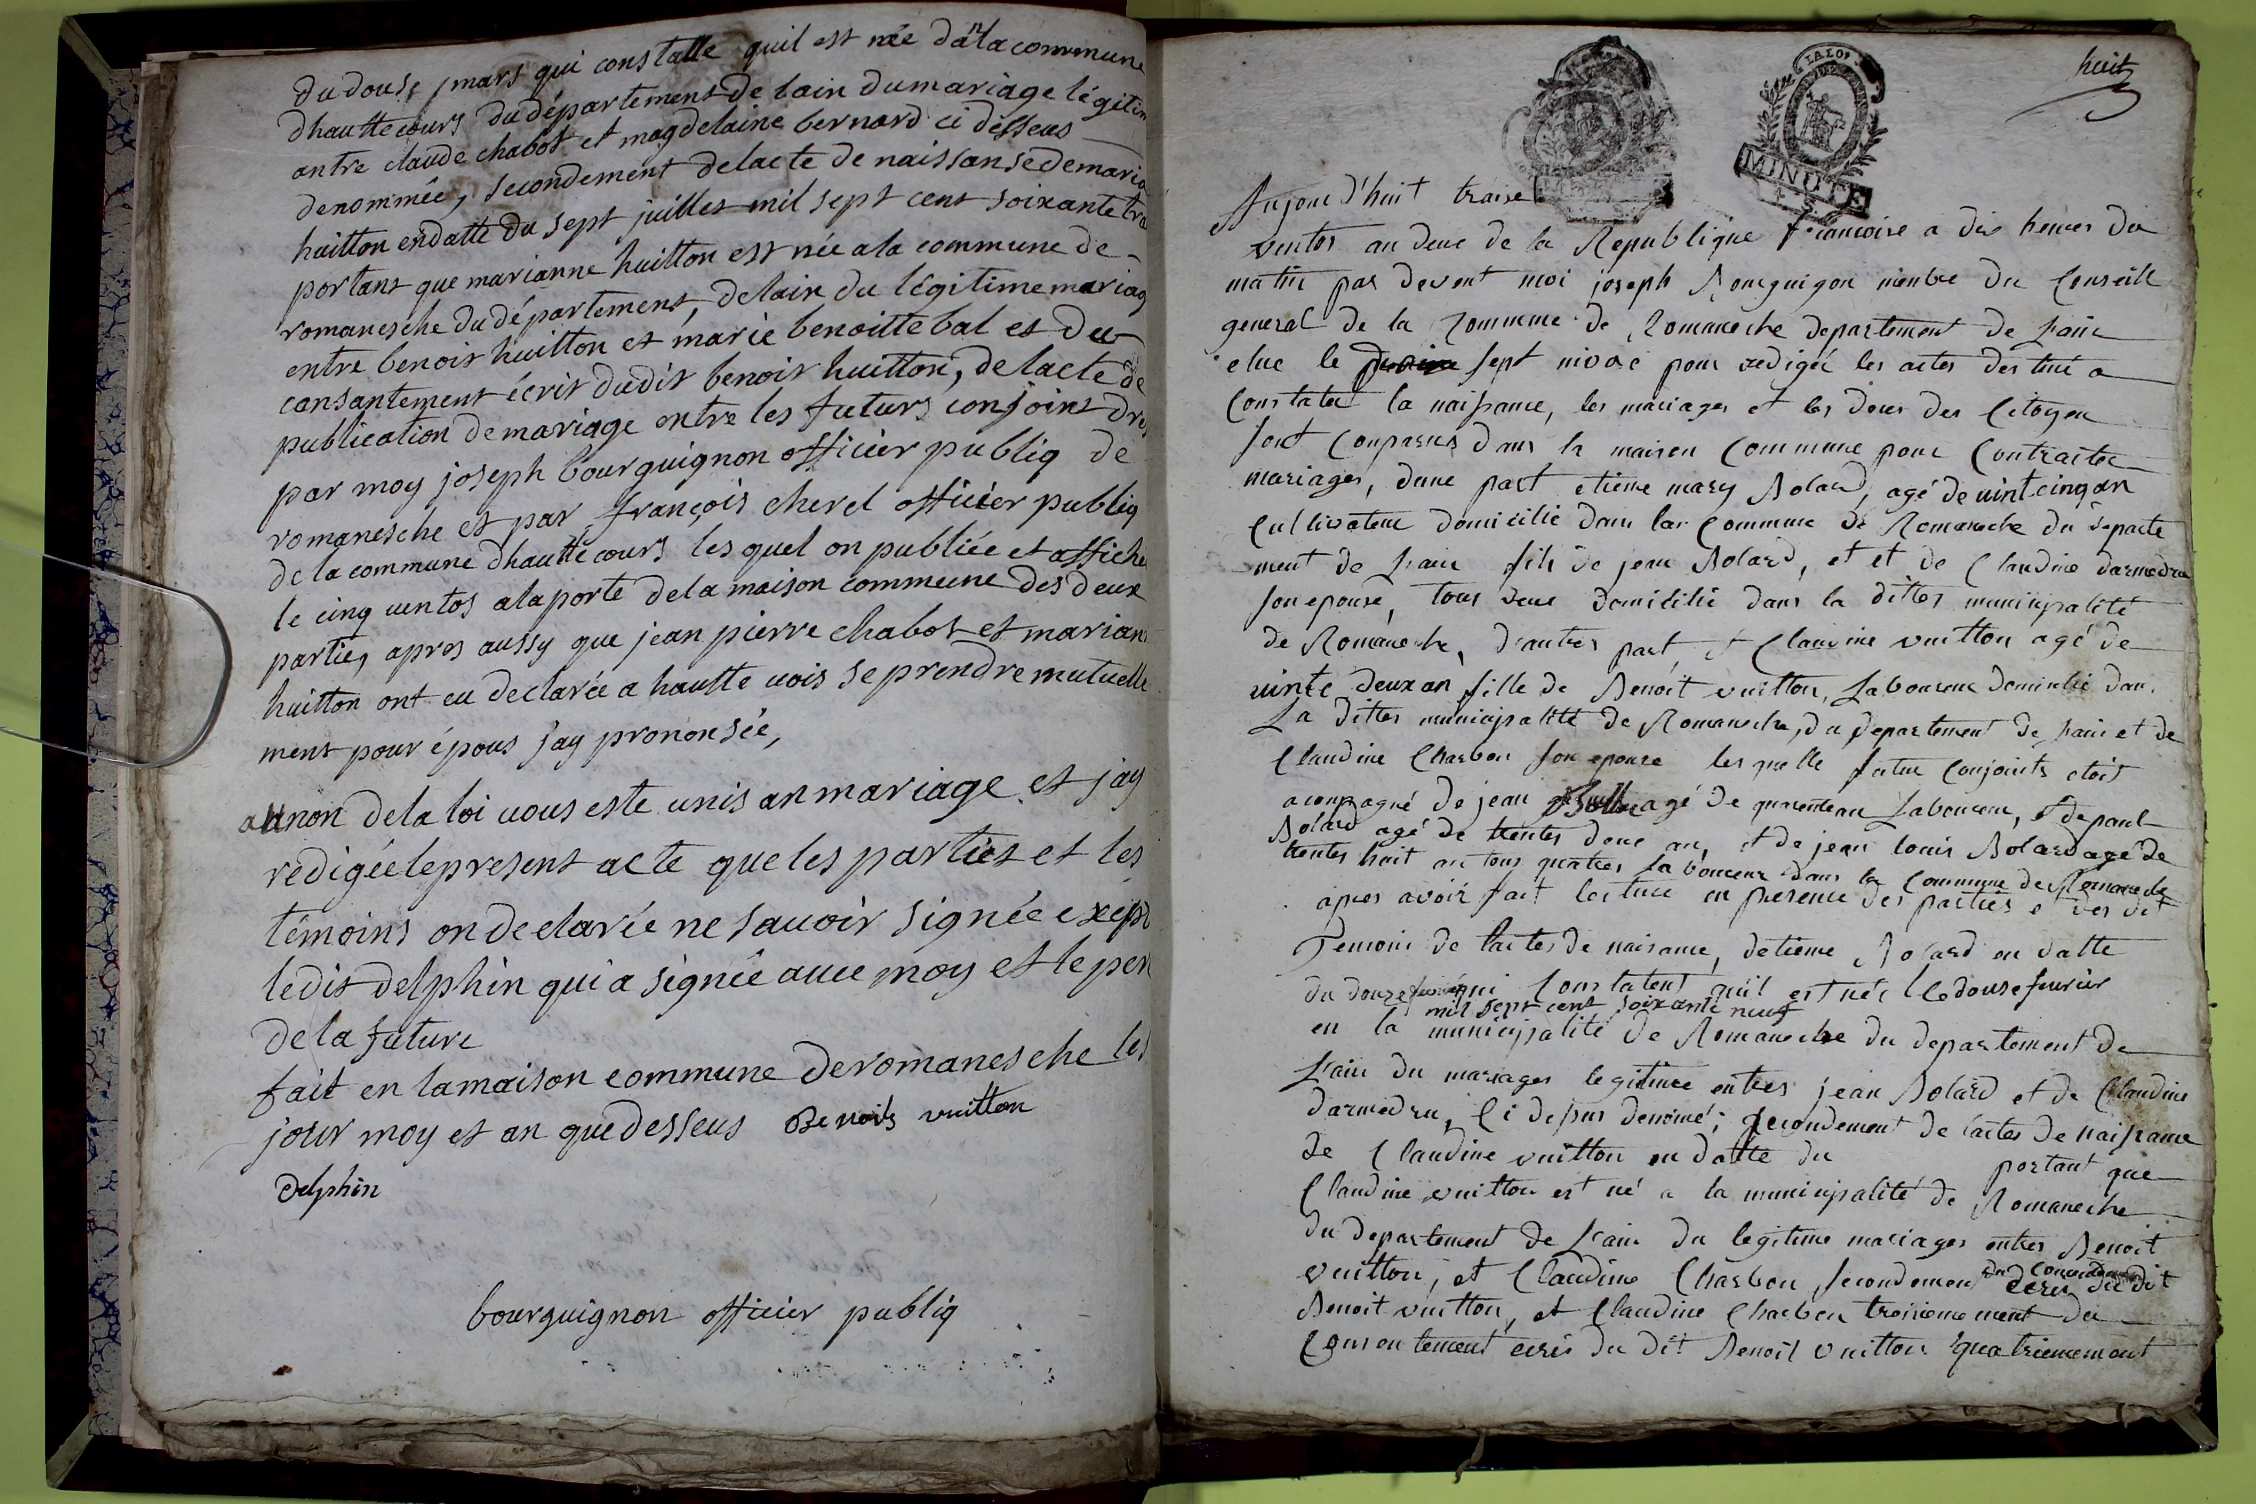 du douse mars qui constatte quil est née danla commune
dhauttecours du département de lain du mariage légitim
antre claude chabot et magdelaine bernard ci desseus
denommée, secondement delacte de naissanse de maria
huitton en datte du sept juilles mil sept cens soixante tra
portans que marianne huitton est née ala commune de
romanesche du département, de lain du légitime mariag
entre benois huitton et marie benoitte bal et du
consantement écris dudis benois huitton, de lacte de
publication de mariage entre les futurs conjoins dres
par moy joseph bourguignon officier publiq de
romanesche et par françois cherel officier publiq
de la commune dhautte cours les quel on publiée et affiche
le cinq ventos ala porte de la maison commune des deux
partie, apres aussy que jean pierre chabot et mariann
huitton ont eu declarée a hautte vois se prendre mutuelle
mens pour épous j'ay prononsée,
au non de la loi vous este unis an mariage et jay
redigée le presens acte que les parties et les
témoins on declarée ne savoir signée exept
ledis delphin qui a signée avec moy et le per
de la future
fait en la maison commune de romanesche les
jour moy et an que desseus Benoits vuitton
Delphin
bourguignon officier publiq
huit
MINUTE
4 S
Aujourd'huit traise
ventos an deux de la Republique francoise a dix heures du
matin par devent moi joseph Bourguigon menbre du Conseill
general de la Commune de Romaneche departement de Lain
elue le sept nivose pour redigée les actes destiné a
Constater la naissance, les mariages et les deces des Citoyen
sont Comparus dans la maison Commune pour Contracter
mariages, dune part etiene mary Bolard, agé de vint cinq an
Cultivateur domicilié dans la Commune de Romaneche du departe
ment de Lain fils de jean Bolard, et et de Claudine darmedru
son epouse, tous deux domicilié dans la dittes municipalité
de Romaneche, d'autres part, et Claudine vuitton agé de
vinte deux an fille de Benoit vuitton, Laboureur domicilié dans
La dittes municipalité de Romaneche, du departement de Lain et de
Claudine Charbon son epouse les quelle futur Conjoints etoit
acompagné de jean agé de quarente an Laboureur, et de paul
Bolard agé de trentes deux an, et de jean louis Bolard agé de
trentes huit an tous quatres laboureur dans la Commune de Romaneche
apres avoir fait lecture en presence des parties et des dit
Temoin de lactes de naisance, detiene Bolard en datte
du douze fevrier qui Constatent quil est née le douse fevrier
mil sept cent soixante neuf
en la municipalité de Romaneche du departement de
Lain du mariages legitime entres jean Bolard et de Claudine
darmedru, Ci desus denomé; secondement de lactes de naissance
de Claudine vuitton en datte du portant que
Claudine vuitton est né a la municipalité de Romaneche
du departement de Lain du legitime mariages entres Benoit
vuitton, et Claudine Charbon, secondement du
ecrie du dit
Benoit vuitton, et Claudine Charbon troisiemement du
Consentement ecris du dit Benoit vuitton quatriemement